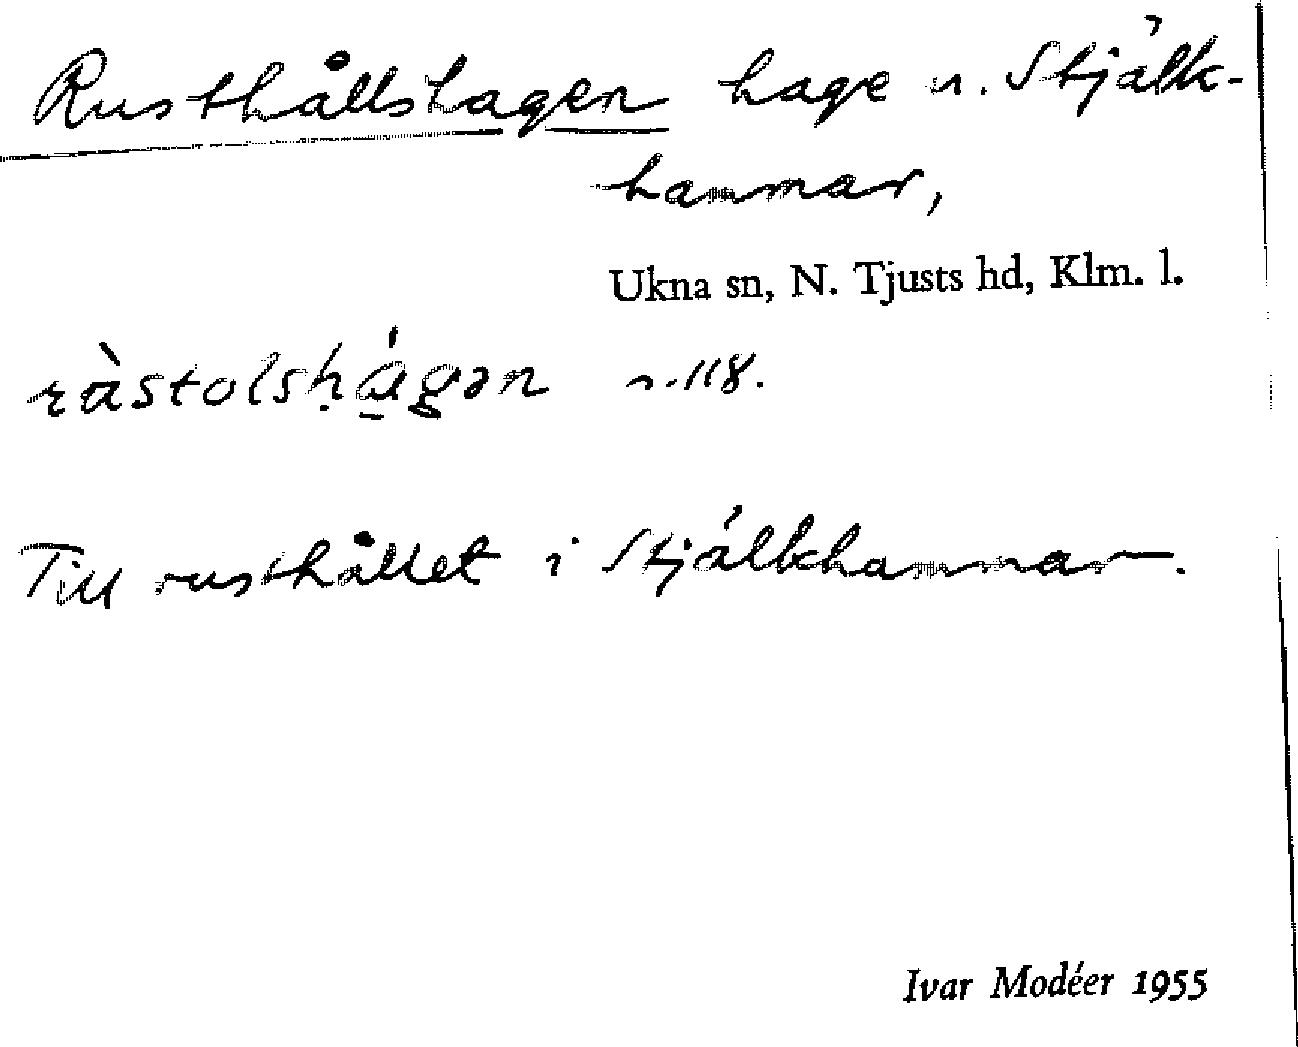 Rusthållshagen hage u. Stjälk-
hammar,
Ukna sn, N. Tjusts hd, Klm. l.
ràstolsḥá̱gən n. 118.
Till rusthållet i Stjälkhammar.
Ivar Modéer 1955